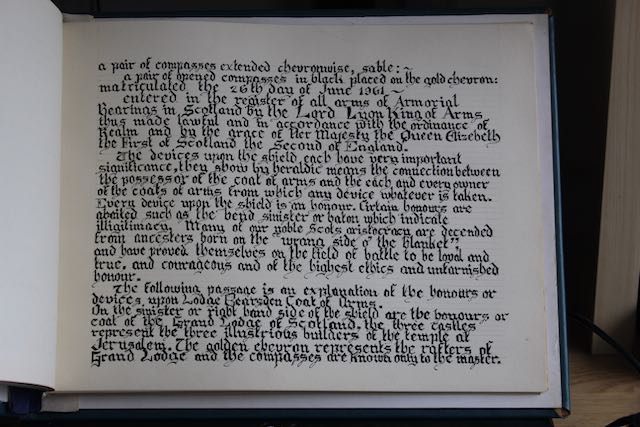 a pair of compasses extended chevronwise, sable: ~
a pair of opened compasses in black placed on the gold chevron:
matriculated the 26th day of June 1961 ~
entered in the register of all arms of Armorial
Bearings in Scotland by the Lord Lyon King of Arms
thus made lawful and in accordance with the ordinance of
Realm and by the grace of Her Majesty the Queen Elizebeth
the First of Scotland the Second of England.
The devices upon the shield each have very important
significance, they show by heraldic means the connection between
the possessor of the coat of arms and the each and every owner
of the coats of arms from which any device whatever is taken.
Every device upon the shield is an honour. Certain honours are
abaited such as the bend sinister or baton which indicate
illigitimacy. Many of our noble Scots aristocracy are decended
from ancesters born on the "wrang side o' the blanket",
and have proved themselves on the field of battle to be loyal and
true, and courageous and of the highest ethics and untarnished
honour.
The following passage is an explanation of the honours or
devices, upon Lodge Bearsden Coat of Arms.
On the sinister or right hand side of the shield are the honours or
coat of the Grand Lodge of Scotland, the three castles
represent the three illustrious builders of the temple at
Jerusalem. The golden chevron represents the rafters of
Grand Lodge and the compasses are known only to the master.